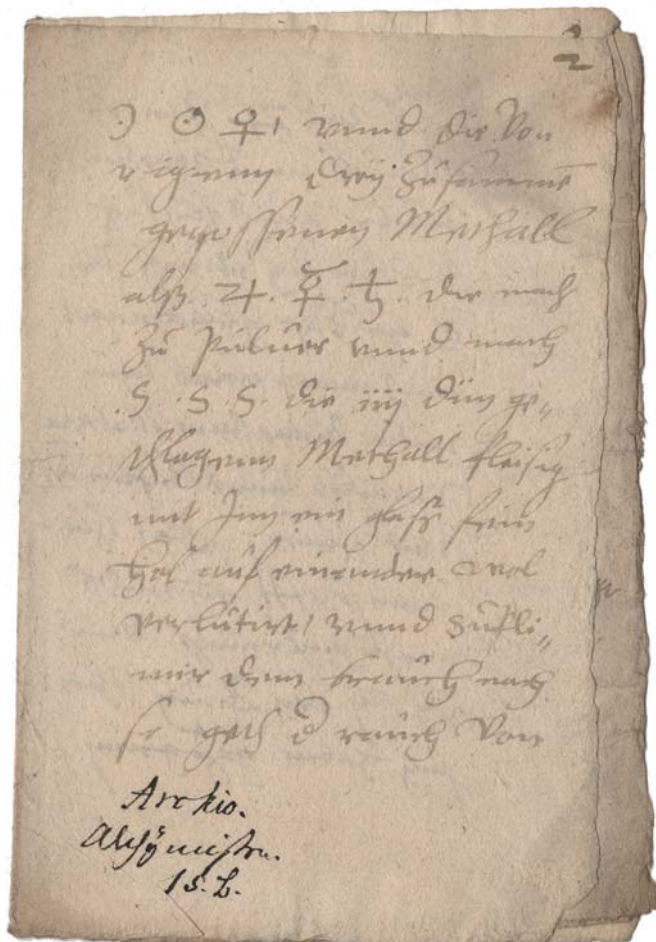 2
☽ ☉ ♀, vnnd die Vor
rigenn dreÿ Zusammē
gegossenen Methall
alß ♃. ☿. ♄. die mach
Zu Puluer vnnd mach
S. S. S. die iiij dün ge„
schlagenn Methall fleisig
mit Inn ein glaß fein
hol auf einander wol
verlutirt, vnnd Subli„
mir dem brauch nach
so geth d rauch Von
Archiv.
Alchÿmisten.